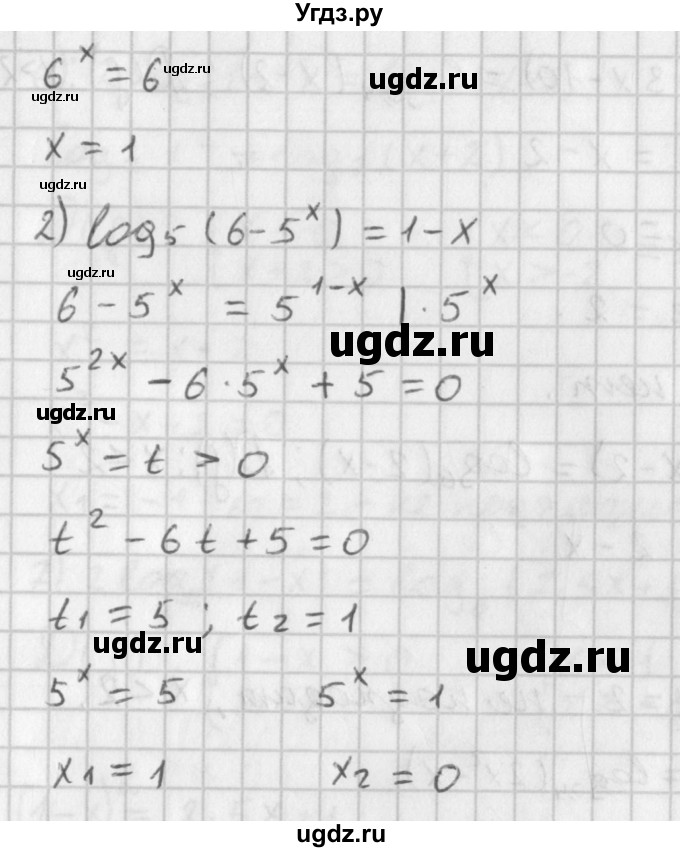 Угдз.ру
6^x = 6
ugdz.ru
ugdz.ru
ugdz.ru
x = 1
ugdz.ru
2) log₅ (6 - 5^x) = 1 - x
6 - 5^x = 5^(1-x) | · 5^x
ugdz.ru
5^(2x) - 6 · 5^x + 5 = 0
ugdz.ru
5^x = t > 0
t² - 6t + 5 = 0
t₁ = 5 ; t₂ = 1
ugdz.ru
ugdz.ru
5^x = 5 5^x = 1
x₁ = 1 x₂ = 0
ugdz.ru
ugdz.ru